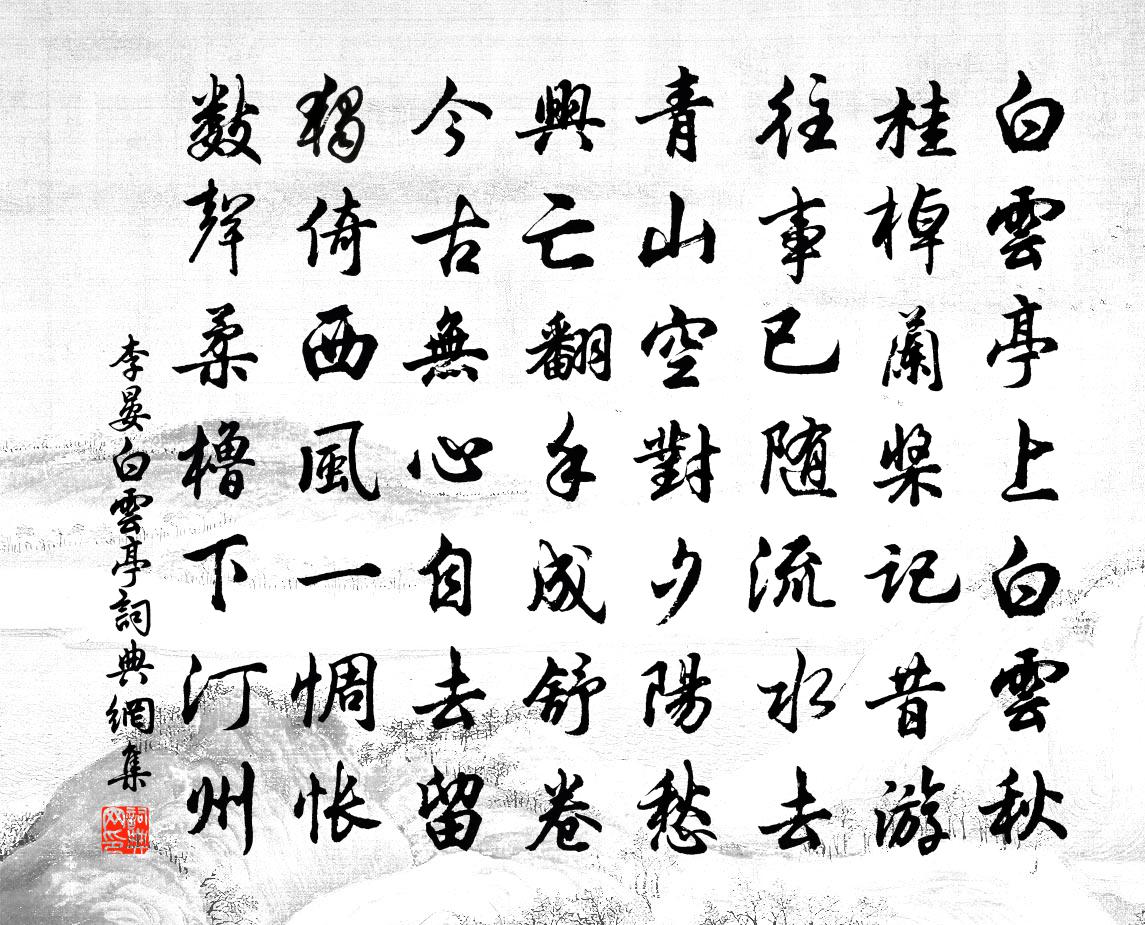 白雲亭上白雲秋
桂棹蘭槳記昔游
往事已随流水去
青山空對夕陽愁
興亡翻手成舒卷
今古無心自去留
獨倚西風一惆悵
数聲柔櫓下汀州
李晏白雲亭詞典網集
詞典網印